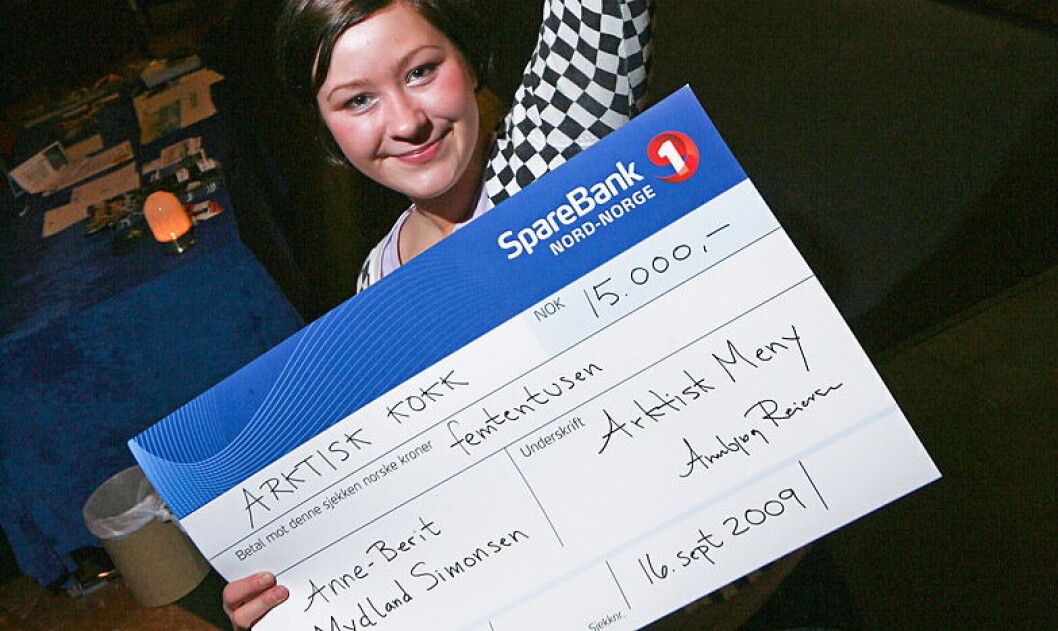 SpareBank 1
NORD-NORGE
NOK 15.000,-
ARKTISK KOKK
Betal mot denne sjekken norske kroner femtentusen
Underskrift Arktisk Meny
Annbjørg Reiersen
Anne-Berit
Mydland Simonsen
16. sept 2009
Sjekknr.